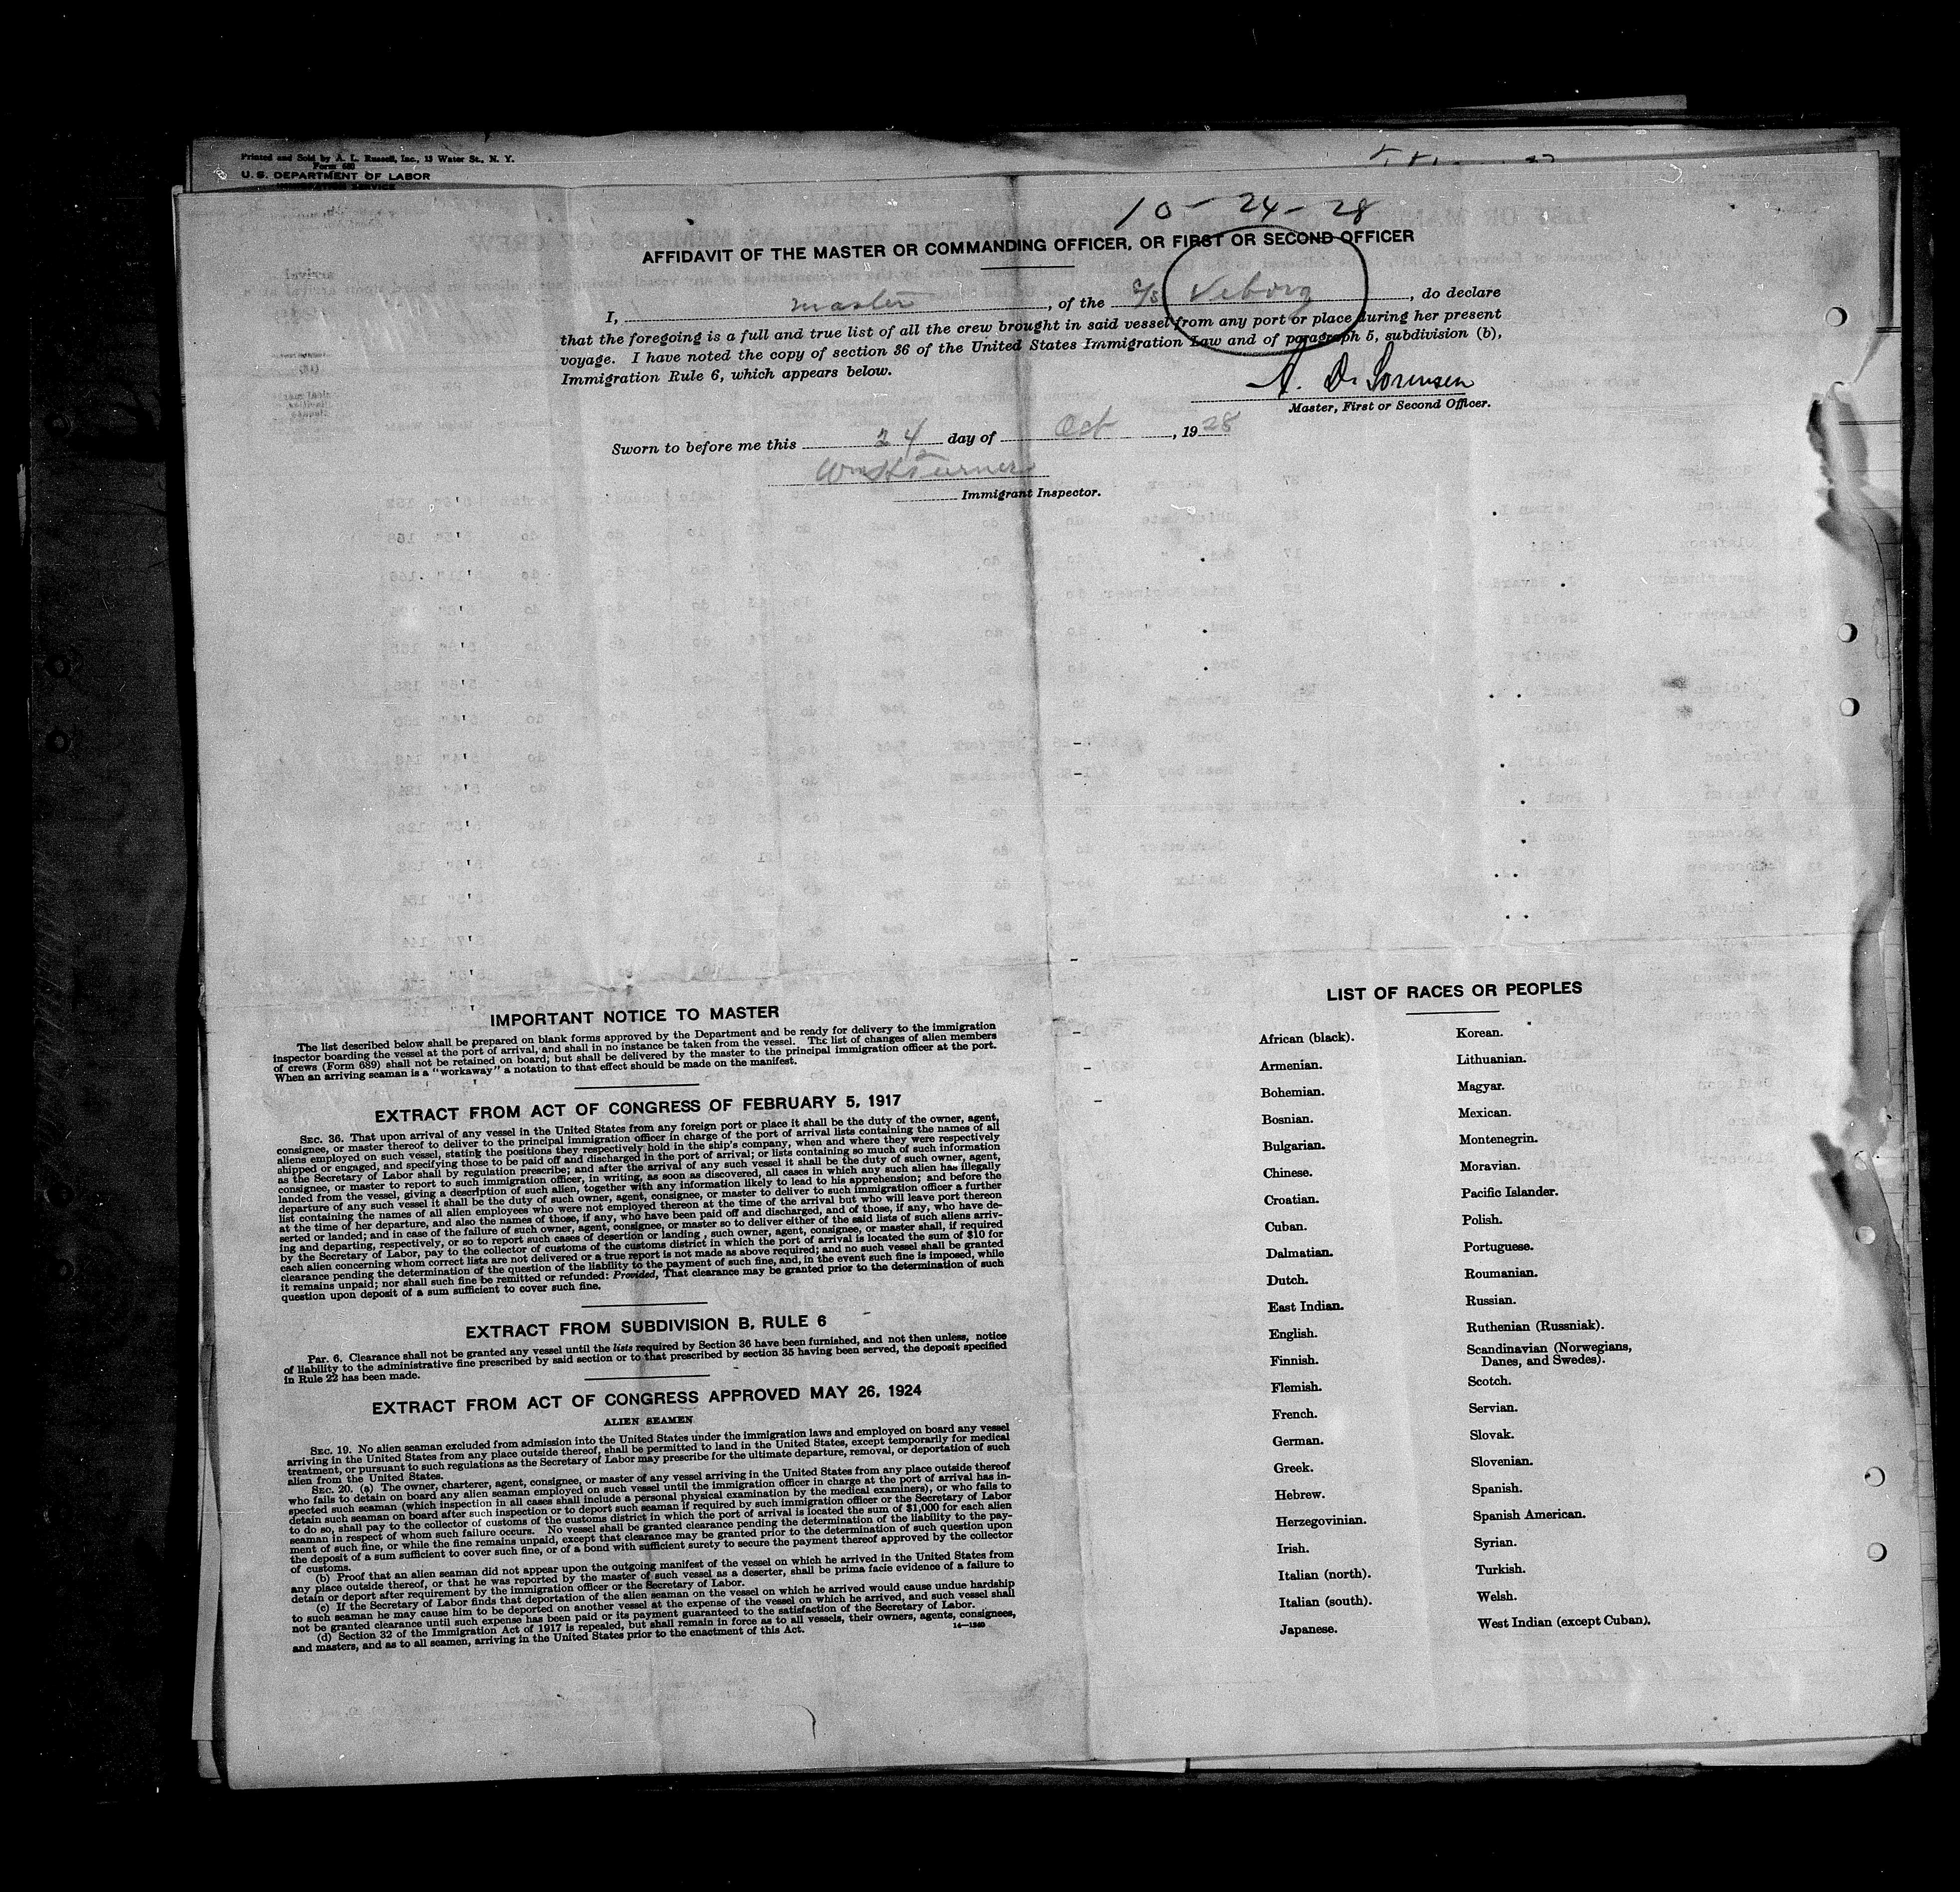 Printed and Sold by A. L. Russell, Inc., 13 Water St., N. Y.
Form 680
U. S. DEPARTMENT OF LABOR
10 - 24 - 28
AFFIDAVIT OF THE MASTER OR COMMANDING OFFICER, OR FIRST OR SECOND OFFICER
I, master, of the S/S Veborg, do declare
that the foregoing is a full and true list of all the crew brought in said vessel from any port or place during her present
voyage. I have noted the copy of section 36 of the United States Immigration Law and of paragraph 5, subdivision (b),
Immigration Rule 6, which appears below.
A. D. Sorensen
Master, First or Second Officer.
Sworn to before me this 24 day of Oct, 1928
Wm H Turner
Immigrant Inspector.
IMPORTANT NOTICE TO MASTER
The list described below shall be prepared on blank forms approved by the Department and be ready for delivery to the immigration
inspector boarding the vessel at the port of arrival, and shall in no instance be taken from the vessel. The list of changes of alien members
of crews (Form 689) shall not be retained on board; but shall be delivered by the master to the principal immigration officer at the port.
When an arriving seaman is a "workaway" a notation to that effect should be made on the manifest.
EXTRACT FROM ACT OF CONGRESS OF FEBRUARY 5, 1917
SEC. 36. That upon arrival of any vessel in the United States from any foreign port or place it shall be the duty of the owner, agent,
consignee, or master thereof to deliver to the principal immigration officer in charge of the port of arrival lists containing the names of all
aliens employed on such vessel, stating the positions they respectively hold in the ship's company, when and where they were respectively
shipped or engaged, and specifying those to be paid off and discharged in the port of arrival; or lists containing so much of such information
as the Secretary of Labor shall by regulation prescribe; and after the arrival of any such vessel it shall be the duty of such owner, agent,
consignee, or master to report to such immigration officer, in writing, as soon as discovered, all cases in which any such alien has illegally
landed from the vessel, giving a description of such alien, together with any information likely to lead to his apprehension; and before the
departure of any such vessel it shall be the duty of such owner, agent, consignee, or master to deliver to such immigration officer a further
list containing the names of all alien employees who were not employed thereon at the time of the arrival but who will leave port thereon
at the time of her departure, and also the names of those, if any, who have been paid off and discharged, and of those, if any, who have de-
serted or landed; and in case of the failure of such owner, agent, consignee, or master so to deliver either of the said lists of such aliens arriv-
ing and departing, respectively, or so to report such cases of desertion or landing , such owner, agent, consignee, or master shall, if required
by the Secretary of Labor, pay to the collector of customs of the customs district in which the port of arrival is located the sum of $10 for
each alien concerning whom correct lists are not delivered or a true report is not made as above required; and no such vessel shall be granted
clearance pending the determination of the question of the liability to the payment of such fine, and, in the event such fine is imposed, while
it remains unpaid; nor shall such fine be remitted or refunded: Provided, That clearance may be granted prior to the determination of such
question upon deposit of a sum sufficient to cover such fine.
EXTRACT FROM SUBDIVISION B, RULE 6
Par. 6. Clearance shall not be granted any vessel until the lists required by Section 36 have been furnished, and not then unless, notice
of liability to the administrative fine prescribed by said section or to that prescribed by section 35 having been served, the deposit specified
in Rule 22 has been made.
EXTRACT FROM ACT OF CONGRESS APPROVED MAY 26, 1924
ALIEN SEAMEN
SEC. 19. No alien seaman excluded from admission into the United States under the immigration laws and employed on board any vessel
arriving in the United States from any place outside thereof, shall be permitted to land in the United States, except temporarily for medical
treatment, or pursuant to such regulations as the Secretary of Labor may prescribe for the ultimate departure, removal, or deportation of such
alien from the United States.
SEC. 20. (a) The owner, charterer, agent, consignee, or master of any vessel arriving in the United States from any place outside thereof
who fails to detain on board any alien seaman employed on such vessel until the immigration officer in charge at the port of arrival has in-
spected such seaman (which inspection in all cases shall include a personal physical examination by the medical examiners), or who fails to
detain such seaman on board after such inspection or to deport such seaman if required by such immigration officer or the Secretary of Labor
to do so, shall pay to the collector of customs of the customs district in which the port of arrival is located the sum of $1,000 for each alien
seaman in respect of whom such failure occurs. No vessel shall be granted clearance pending the determination of the liability to the pay-
ment of such fine, or while the fine remains unpaid, except that clearance may be granted prior to the determination of such question upon
the deposit of a sum sufficient to cover such fine, or of a bond with sufficient surety to secure the payment thereof approved by the collector
of customs.
(b) Proof that an alien seaman did not appear upon the outgoing manifest of the vessel on which he arrived in the United States from
any place outside thereof, or that he was reported by the master of such vessel as a deserter, shall be prima facie evidence of a failure to
detain or deport after requirement by the immigration officer or the Secretary of Labor.
(c) If the Secretary of Labor finds that deportation of the alien seaman on the vessel on which he arrived would cause undue hardship
to such seaman he may cause him to be deported on another vessel at the expense of the vessel on which he arrived, and such vessel shall
not be granted clearance until such expense has been paid or its payment guaranteed to the satisfaction of the Secretary of Labor.
(d) Section 32 of the Immigration Act of 1917 is repealed, but shall remain in force as to all vessels, their owners, agents, consignees,
and masters, and as to all seamen, arriving in the United States prior to the enactment of this Act.
LIST OF RACES OR PEOPLES
African (black).
Armenian.
Bohemian.
Bosnian.
Bulgarian.
Chinese.
Croatian.
Cuban.
Dalmatian.
Dutch.
East Indian.
English.
Finnish.
Flemish.
French.
German.
Greek.
Hebrew.
Herzegovinian.
Irish.
Italian (north).
Italian (south).
Japanese.
Korean.
Lithuanian.
Magyar.
Mexican.
Montenegrin.
Moravian.
Pacific Islander.
Polish.
Portuguese.
Roumanian.
Russian.
Ruthenian (Russniak).
Scandinavian (Norwegians,
Danes, and Swedes).
Scotch.
Servian.
Slovak.
Slovenian.
Spanish.
Spanish American.
Syrian.
Turkish.
Welsh.
West Indian (except Cuban).